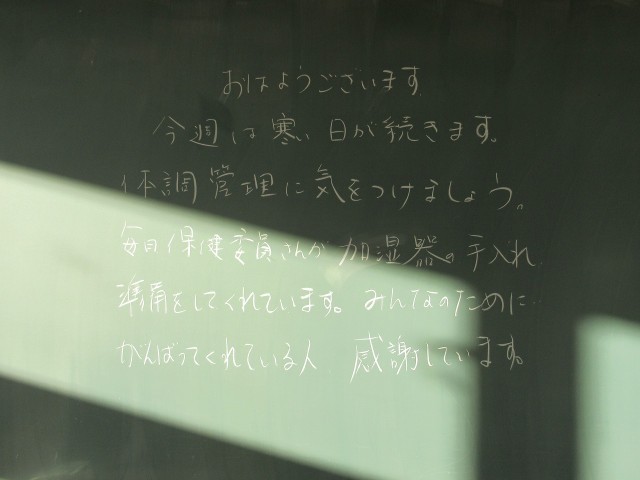 おはようございます
今週は寒い日が続きます。
体調管理に気をつけましょう。
毎日保健委員さんが加湿器の手入れ
準備をしてくれています。みんなのために
がんばってくれている人 感謝しています。